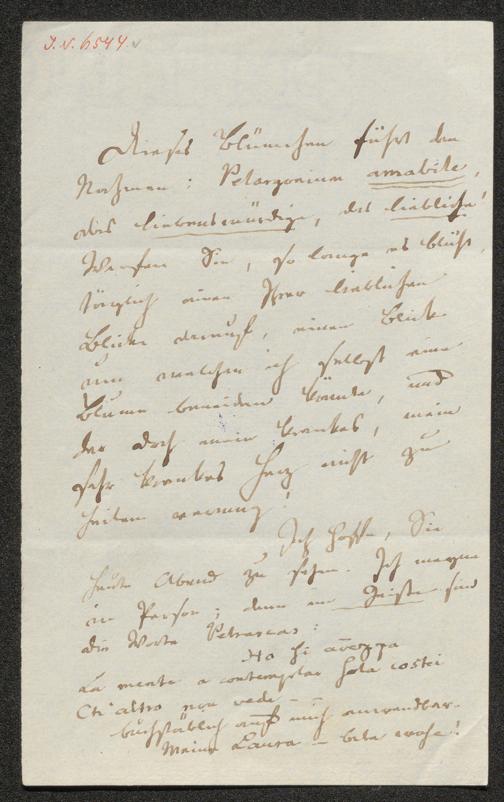 I. N. 6544.
Dieses Blümchen führt den
Nahmen: Pelargonium amabile,
das liebenswürdige, das liebliche!
Werfen Sie, so lange es blüht,
täglich einen Ihrer lieblichen
Blicke darauf, einen Blick
um welchen ich selbst eine
Blume beneiden könnte, und
der doch mein krankes, mein
sehr krankes Herz nicht zu
heilen vermag!
Ich hoffe, Sie
heute Abend zu sehen. Ich meyne
in Person; denn im Geiste sind
die Worte Petrarcas:
Ho sì avezza
La mente a contemplar sola costei
Ch'altro non vede —
buchstäblich auf mich anwendbar.
Meine Laura — lebe wohl!